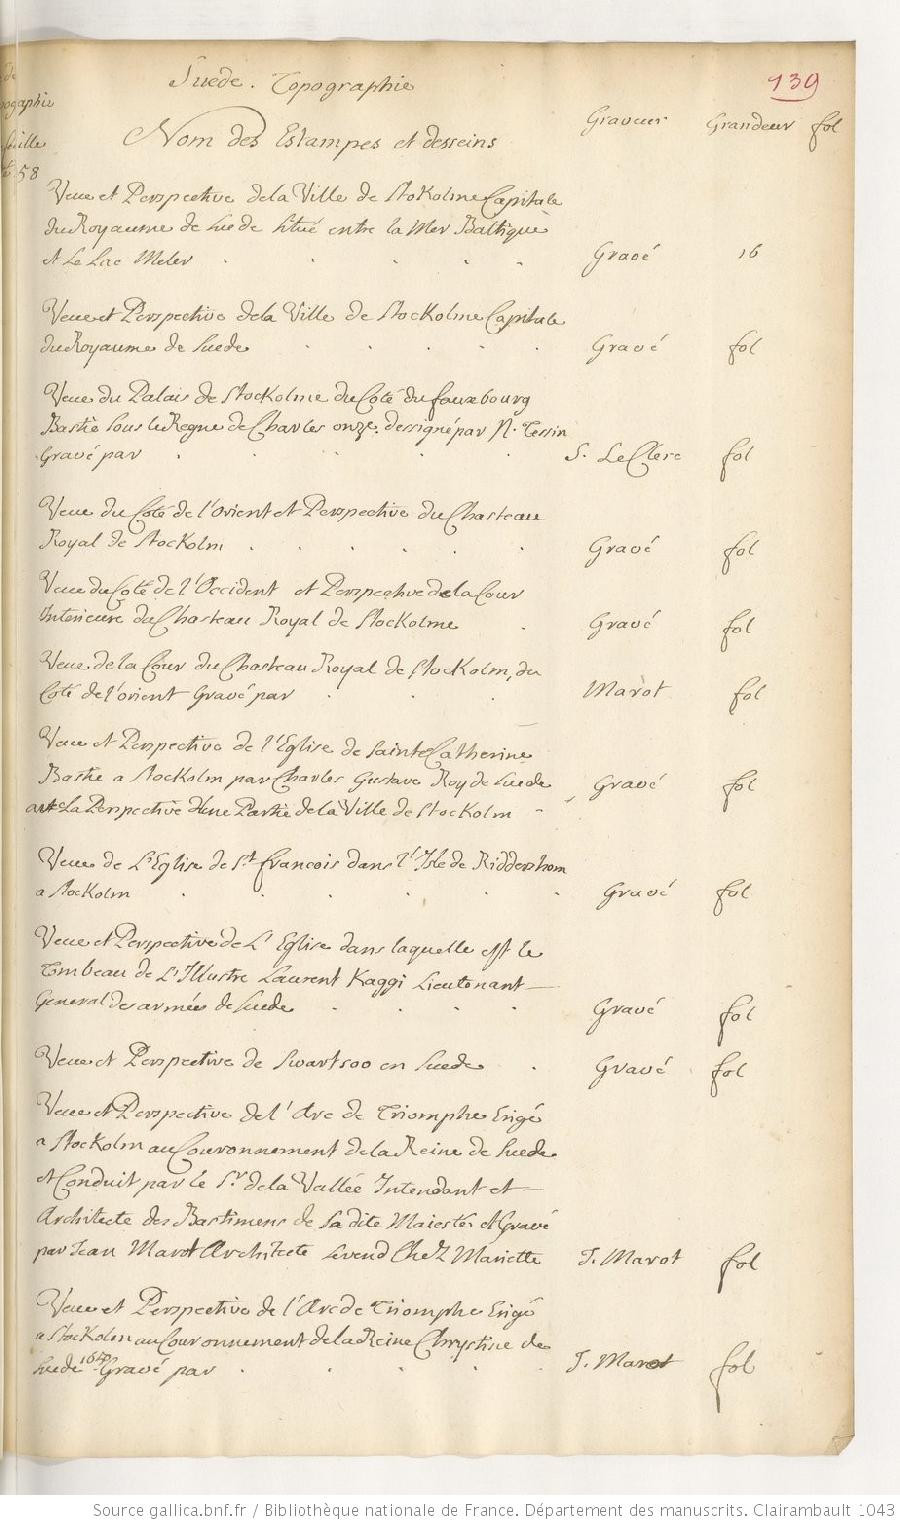 Suede. Topographie
139
Nom des Estampes et desseins
Graveur Grandeur fol
ographie
58
Veue et Perspective de la Ville de Stokolme Capitale
du Royaume de Suede situé entre la Mer Baltique
et Le Lac Meler . . . . Gravé 16
Veue et Perspective de la Ville de Stockolme Capitale
du Royaume de Suede . . . . . Gravé fol
Veue du Palais de Stockolme du Coté du fauxbourg
Bastie sous le Regne de Charles onze. dessigné par N. Tessin
Gravé par . . . . . S. Le Clerc fol
Veue du Coté de l'orient et Perspective du Chasteau
Royal de Stockolm . . . . . . Gravé fol
Veue du Coté de l'Occident et Perspective de la Cour
Interieure du Chasteau Royal de Stockolme . Gravé fol
Veue de la Cour du Chasteau Royal de Stockolm, du
Coté de l'orient Gravé par . . . Marot fol
Veue et Perspective de l'Eglise de Sainte Catherine
Bastie a Stockolm par Charles Gustave Roy de Suede Gravé fol
avec La Perspective d'une Partie de la Ville de Stockolm
Veue de L'Eglise de St. francois dans l'Isle de Riddershom
a Stockolm . . . . . . Gravé fol
Veue et Perspective de L'Eglise dans laquelle est le
Tombeau de L'Illustre Laurent Kaggi Lieutenant
General des armées de Suede . . . . Gravé fol
Veue et Perspective de Swartsoo en Suede . Gravé fol
Veue et Perspective de l'Arc de Triomphe Erigé
a Stockolm au Couronnement de la Reine de Suede
et Conduit par le Sr. de la Vallée Intendant et
Architecte des Bastimens de sa dite Maiesté et Gravé
par Jean Marot Architecte se vend Chez Mariette J. Marot fol
Veue et Perspective de l'Arc de Triomphe Erigé
a Stockolm au Couronnement de la Reine Chrystine de
Suede Gravé par . . . . . J. Marot fol
Source gallica.bnf.fr / Bibliothèque nationale de France. Département des manuscrits. Clairambault 1043